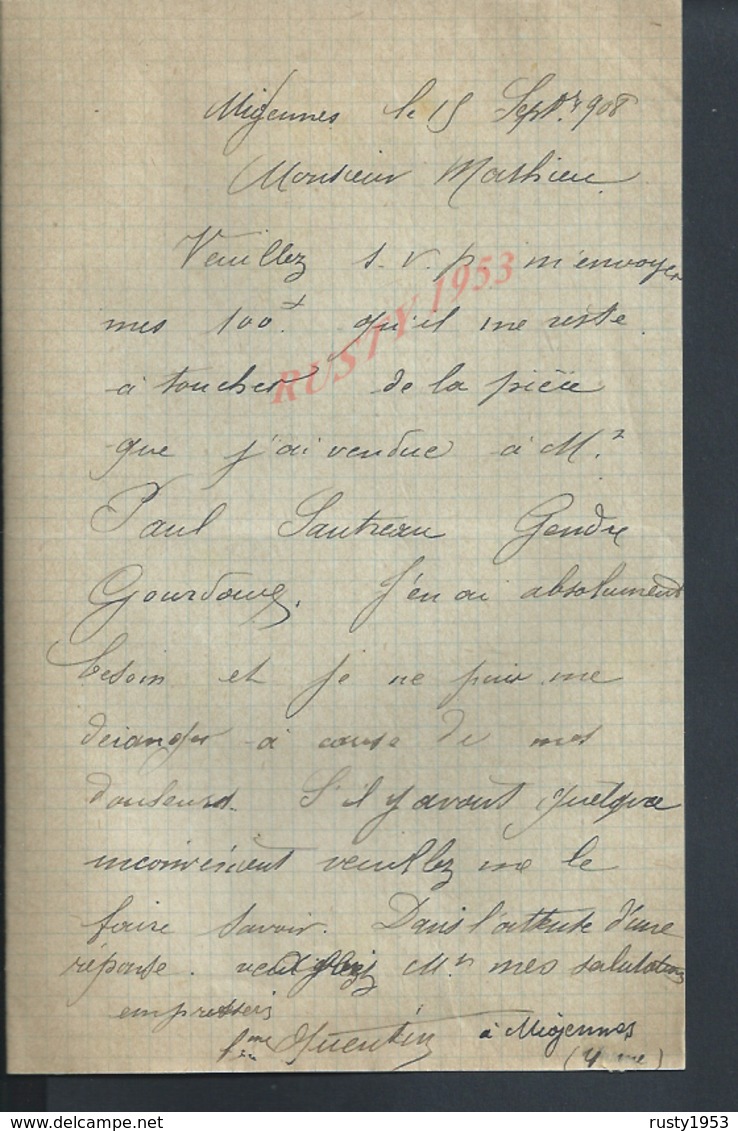 Migennes le 15 Sept. 1908
Monsieur Mathieu
Veuillez s. v. p. m'envoyer
mes 100f. qu'il me reste
à toucher de la pièce
que j'ai vendue à Mr
Paul Sautreau Gendre
J'en ai absolument
besoin et je ne puis me
déranger à cause de mes
douleurs. S'il y avait quelque
inconvénient veuillez me le
faire savoir. Dans l'attente d'une
réponse. Mr mes salutations
empressées
Quentin à Migennes
RUSTY 1953
rusty1953